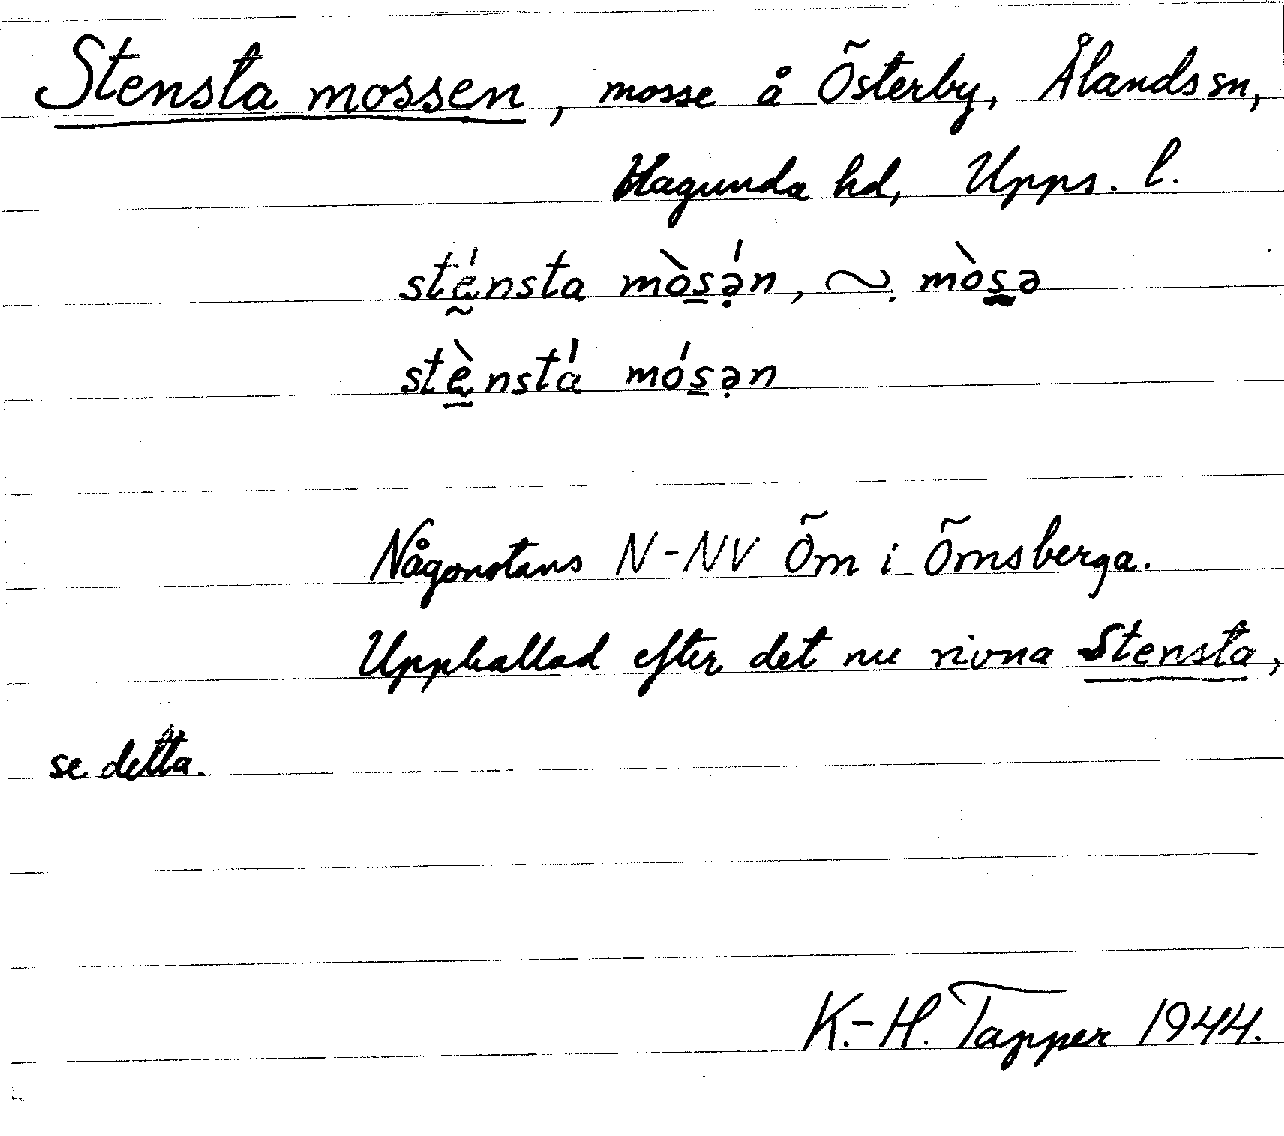 Stensta mossen, mosse å Österby, Ålands sn,
Hagunda hd, Upps. l.
sténsta mòsə́n, ~ mòsə
stènstá mósən
Någonstans N-NV Öm i Örnsberga.
Uppkallad efter det nu rivna Stensta,
se detta.
K.-H. Tapper 1944.